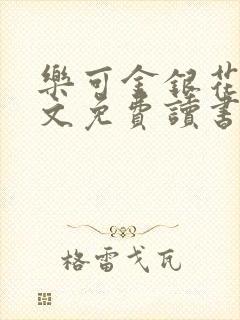 樂可金銀花
文免費讀書
格雷戈瓦